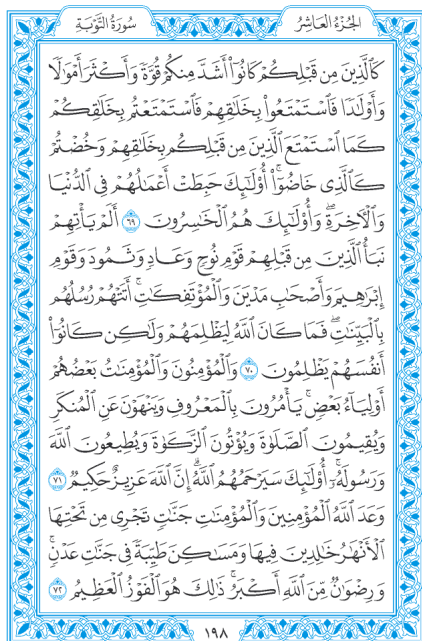 الجُزْءُ العَاشِرُ
سُورَةُ التَّوْبَةِ
كَٱلَّذِينَ مِن قَبْلِكُمْ كَانُوٓا۟ أَشَدَّ مِنكُمْ قُوَّةً وَأَكْثَرَ أَمْوَٰلًا
وَأَوْلَٰدًا فَٱسْتَمْتَعُوا۟ بِخَلَٰقِهِمْ فَٱسْتَمْتَعْتُم بِخَلَٰقِكُمْ
كَمَا ٱسْتَمْتَعَ ٱلَّذِينَ مِن قَبْلِكُم بِخَلَٰقِهِمْ وَخُضْتُمْ
كَٱلَّذِى خَاضُوٓا۟ ۚ أُو۟لَٰٓئِكَ حَبِطَتْ أَعْمَٰلُهُمْ فِى ٱلدُّنْيَا
وَٱلْءَاخِرَةِ ۖ وَأُو۟لَٰٓئِكَ هُمُ ٱلْخَٰسِرُونَ ٦٩ أَلَمْ يَأْتِهِمْ
نَبَأُ ٱلَّذِينَ مِن قَبْلِهِمْ قَوْمِ نُوحٍ وَعَادٍ وَثَمُودَ وَقَوْمِ
إِبْرَٰهِيمَ وَأَصْحَٰبِ مَدْيَنَ وَٱلْمُؤْتَفِكَٰتِ ۚ أَتَتْهُمْ رُسُلُهُم
بِٱلْبَيِّنَٰتِ ۖ فَمَا كَانَ ٱللَّهُ لِيَظْلِمَهُمْ وَلَٰكِن كَانُوٓا۟
أَنفُسَهُمْ يَظْلِمُونَ ٧٠ وَٱلْمُؤْمِنُونَ وَٱلْمُؤْمِنَٰتُ بَعْضُهُمْ
أَوْلِيَآءُ بَعْضٍ ۚ يَأْمُرُونَ بِٱلْمَعْرُوفِ وَيَنْهَوْنَ عَنِ ٱلْمُنكَرِ
وَيُقِيمُونَ ٱلصَّلَوٰةَ وَيُؤْتُونَ ٱلزَّكَوٰةَ وَيُطِيعُونَ ٱللَّهَ
وَرَسُولَهُۥٓ ۚ أُو۟لَٰٓئِكَ سَيَرْحَمُهُمُ ٱللَّهُ ۗ إِنَّ ٱللَّهَ عَزِيزٌ حَكِيمٌ ٧١
وَعَدَ ٱللَّهُ ٱلْمُؤْمِنِينَ وَٱلْمُؤْمِنَٰتِ جَنَّٰتٍ تَجْرِى مِن تَحْتِهَا
ٱلْأَنْهَٰرُ خَٰلِدِينَ فِيهَا وَمَسَٰكِنَ طَيِّبَةً فِى جَنَّٰتِ عَدْنٍ ۚ
وَرِضْوَٰنٌ مِّنَ ٱللَّهِ أَكْبَرُ ۚ ذَٰلِكَ هُوَ ٱلْفَوْزُ ٱلْعَظِيمُ ٧٢
١٩٨